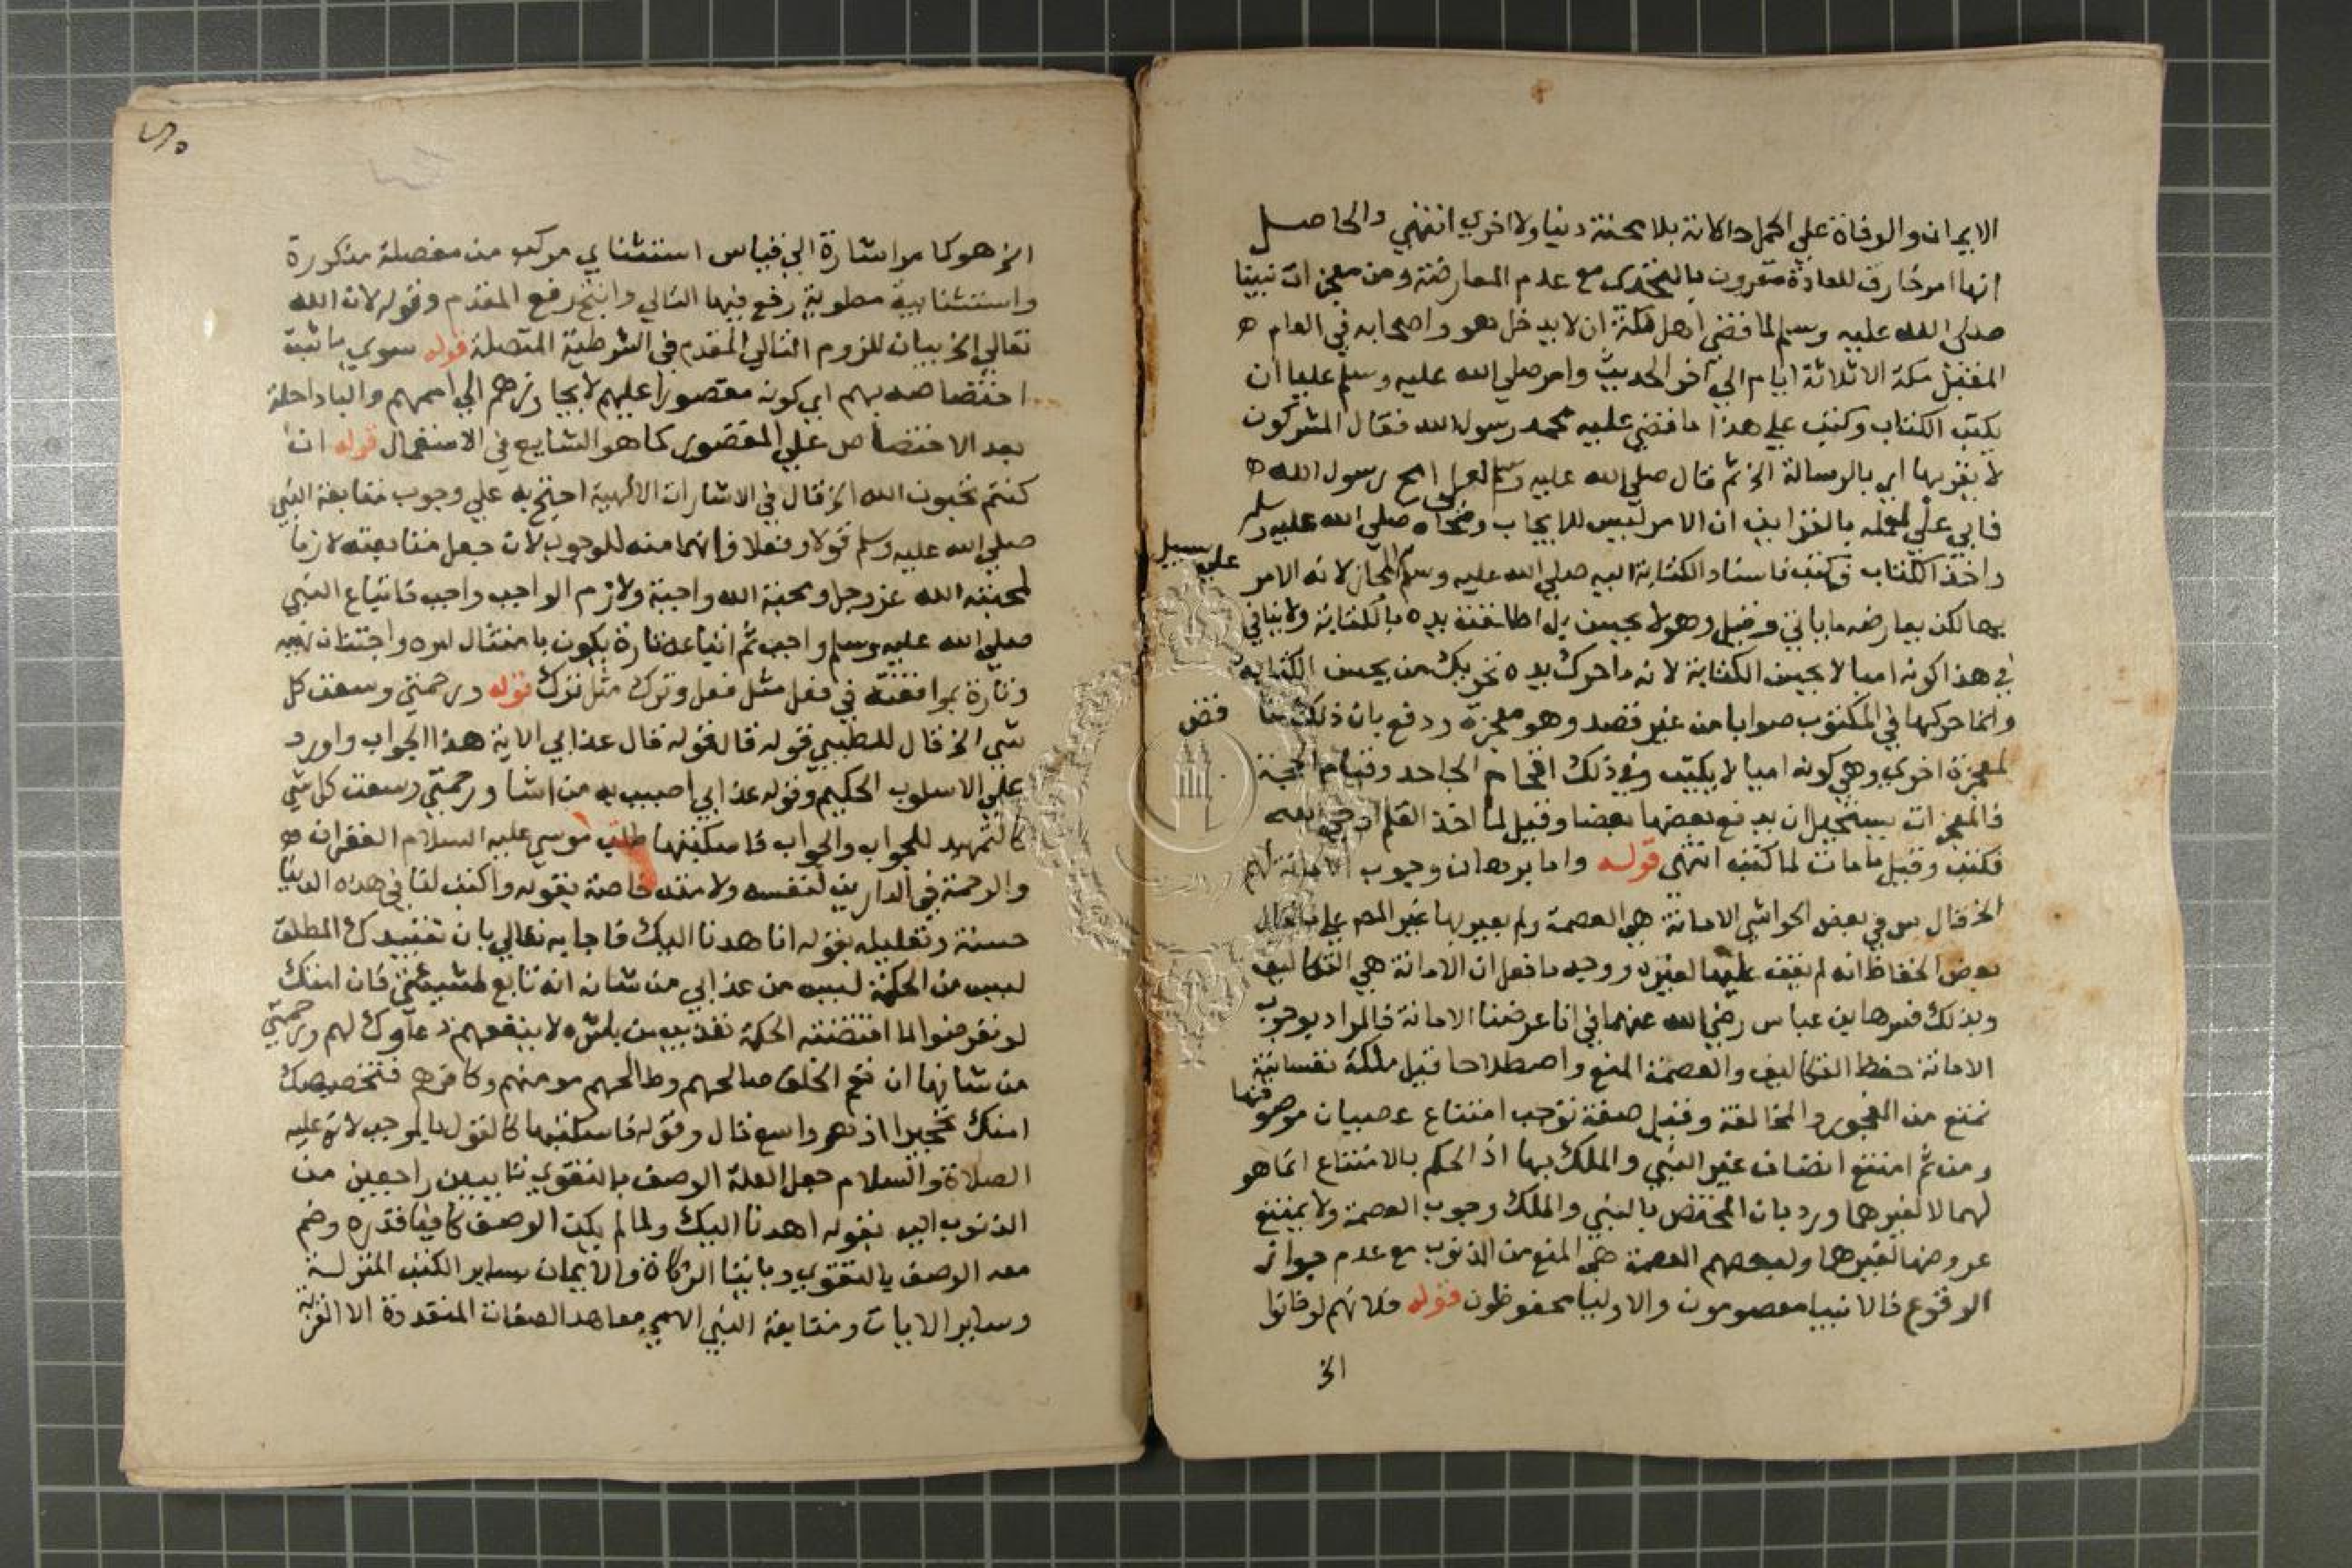 الايمان والوفاة علي اكمل حالاته بلا محنة دنيا ولا اخري انتهي والحاصل
انها امر خارق للعادة مقرون بالتحدي مع عدم المعارضة ومن معجزات نبينا
صلي الله عليه وسلم لما قضي اهل مكة ان لا يدخل هو واصحابه في العام
المقبل مكة الا ثلاثة ايام الي آخر الحديث وامر صلي الله عليه وسلم عليا ان
يكتب الكتاب وكتب علي هذا ما قضي عليه محمد رسول الله فقال المشركون
لا نقر بها اي بالرسالة الخ ثم قال صلي الله عليه وسلم لعلي امح رسول الله
فابي علي لعلمه بالقراين ان الامر ليس للايجاب ومحاه صلي الله عليه وسلم
واخذ الكتاب فكتب فاسناد الكتابة اليه صلي الله عليه وسلم علي سبيل المجاز لانه الامر
بها لكن يعارضه ما ياتي وقيل وهو لا يحسن بل اطلقت يده بالكتابة ولا ينافي
في هذا كونه اميا لا يحسن الكتابة لانه ما حرك يده تحريك من يحسن الكتابة
وانما حركها في المكتوب صوابا من غير قصد وهو معجزة ودفع بان ذلك مناقض
لمعجزة اخري وهي كونه اميا لا يكتب وفي ذلك افحام الجاحد وقيام الحجة
فالمعجزات يستحيل ان يدفع بعضها بعضا وقيل لما اخذ القلم اوحي اليه
فكتب وقيل ما مات لما كتب انتهي قوله واما برهان وجوب الامانة لهم
الخ قال س في بعض الحواشي الامانة هي العصمة ولم يعبر بها غير المص علي ما قال
بعض الحفاظ انه لم يقف عليها لغيره ووجه ما فعل ان الامانة هي التكاليف
وبذلك فسرها ابن عباس رضي الله عنهما في انا عرضنا الامانة فالمراد بوجوب
الامانة حفظ التكاليف والعصمة المنع واصطلاحا قيل ملكة نفسانية
تمنع من الفجور والمخالفة وقيل صفة توجب امتناع عصيان موصوفها
ومن ثم امتنع اتصاف غير النبي والملك بها اذ الحكم بالامتناع انما هو
لهما لا لغيرهما ورد بان المختص بالنبي والملك وجوب العصمة ولا يمتنع
عروضها لغيرهما ولبعضهم العصمة هي المنع من الذنوب مع عدم جواز
الوقوع فالانبيا معصومون والاوليا محفوظون قوله فلانهم لو خانوا
الخ
الخ هو كما مر اشارة الي قياس استثنائي مركب من مفصلة مذكورة
واستثنايية مطوية رفع فيها التالي وانتج رفع المقدم وقوله لان الله
تعالي الخ بيان للزوم التالي المقدم في الشرطية المتصلة قوله سوي ما ثبت
اختصاصه بهم اي كونه مقصورا عليهم لا يجاوزهم الي اممهم والبا داخلة
بعد الاختصاص علي المقصور كما هو الشايع في الاستعمال قوله ان
كنتم تحبون الله الخ قال في الاشارات الالهية احتج به علي وجوب متابعة النبي
صلي الله عليه وسلم قولا وفعلا وانهما منه للوجوب لان جعل متابعته لازما
لمحبته الله عز وجل ومحبة الله واجبة ولازم الواجب واجب فاتباع النبي
صلي الله عليه وسلم واجب ثم اتباعه تارة يكون بامتثال امره واجتناب نهيه
وتارة بموافقته في فعل مثل فعل وترك مثل ترك قوله ورحمتي وسعت كل
شي الخ قال للطيبي قوله قال قوله قال عذابي الاية هذا الجواب وارد
علي الاسلوب الحكيم وقوله عذابي اصيب به من اشا ورحمتي وسعت كل شي
كالتمهيد للجواب والجواب فساكتبها طلب موسي عليه السلام الغفران
والرحمة في الدارين لنفسه ولامته خاصة بقوله واكتب لنا في هذه الدنيا
حسنة وتعليله بقوله انا هدنا اليك فاجابه تعالي بان تقييدك المطلق
ليس من الحكمة ليس من عذابي من شانه انه تابع لمشيئتي فان امتك
لو تعرضوا لما اقتضته الحكمة تعذيب من باشره لا ينفعهم دعاوك لهم ورحمتي
من شانها ان تعم الخلق صالحهم وطالحهم مومنهم وكافرهم فتخصيصك
امتك تحجيرا اذ هو واسع قال وقوله فساكتبها كالقول بالموجب لانه عليه
الصلاة والسلام جعل العلة الوصف بالتقوي تايبين راجعين من
الذنوب اليه بقوله اهدنا اليك ولما لم يكن الوصف كافيا قدره وضم
معه الوصف بالتقوي وبايتا الزكاة والايمان بساير الكتب المنزلة
وساير الايات ومتابعة النبي الامي معاهد الصفات المتعددة الا القربة